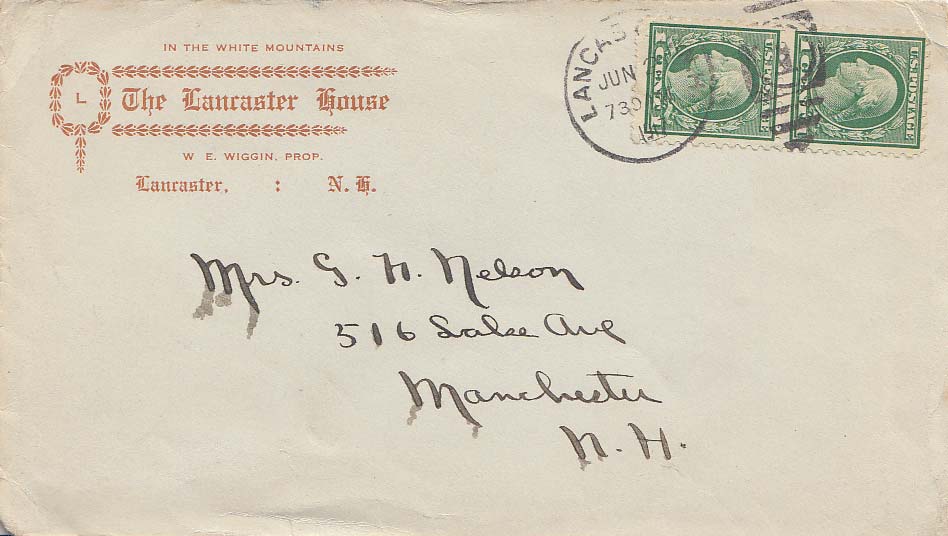 IN THE WHITE MOUNTAINS
L
The Lancaster House
W E. WIGGIN, PROP.
Lancaster, : N. H.
LANCAS
JUN
730
U.S. POSTAGE
U.S. POSTAGE
Mrs. G. H. Nelson
516 Lake Ave
Manchester
N. H.